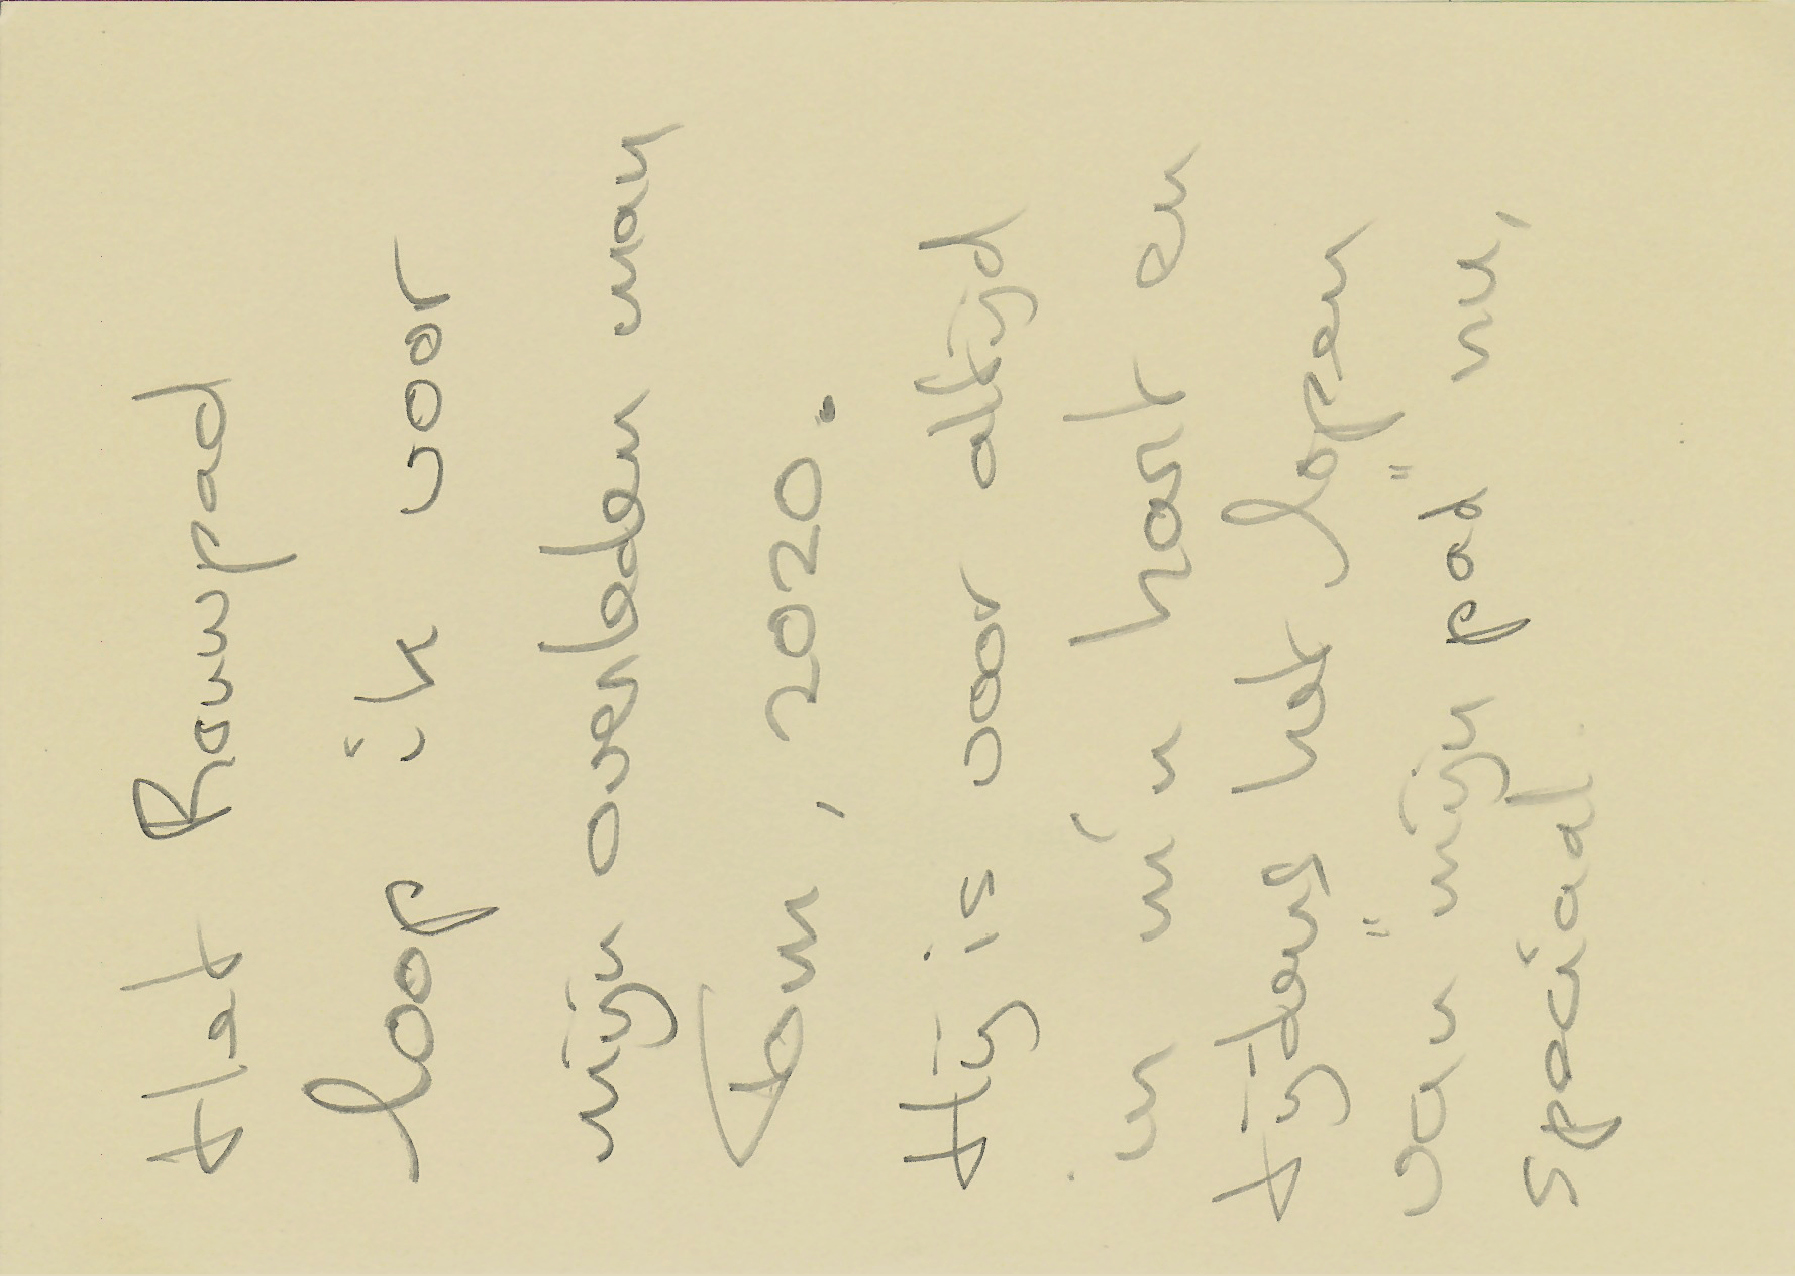 Het Rouwpad
loop ik voor
mijn overleden man
Tom, 2020.
Hij is voor altijd
in m'n hart en
tijdens het lopen
van "mijn pad" nu,
speciaal.